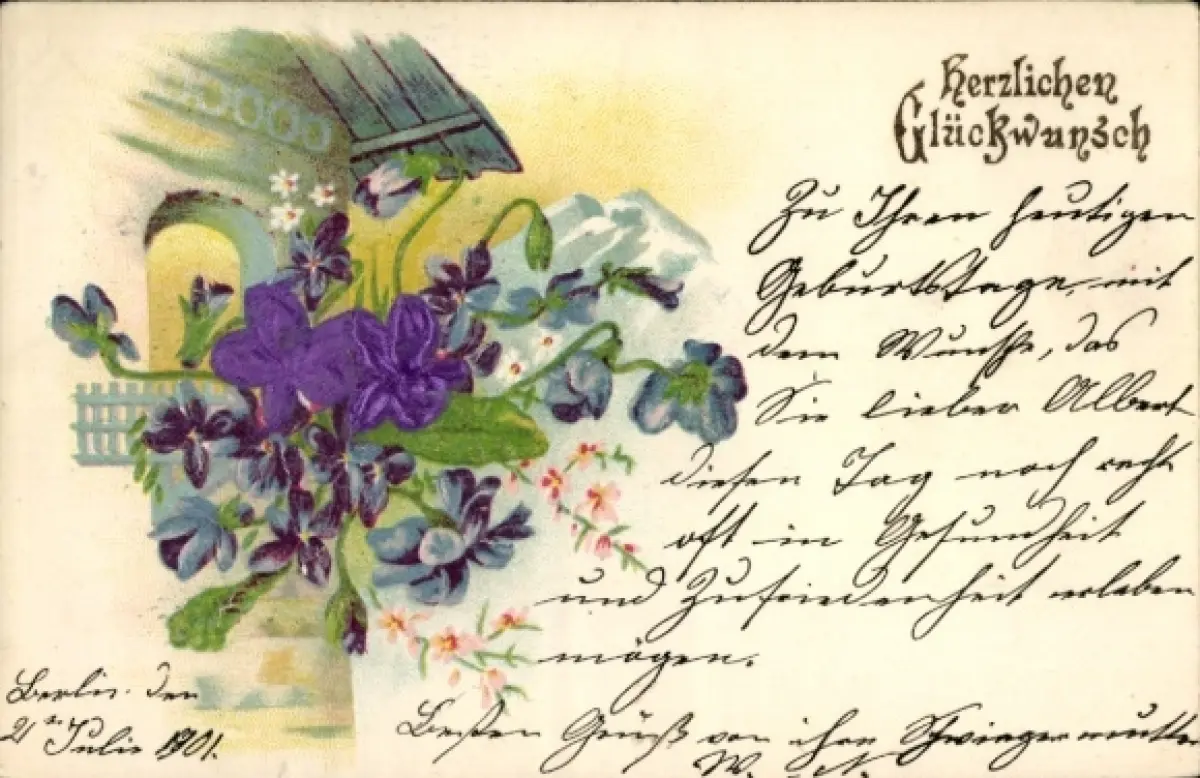 Herzlichen
Glückwunsch
Zu Ihren heutigen
Geburtstage, mit
dem Wunsche, das
Sie lieber Albert
diesen Tag noch recht
oft in Gesundheit
und Zufriedenheit erleben
mögen.
Berlin. den
21 Julie 1901.
Besten Grüß von ihre Schwiegermutter